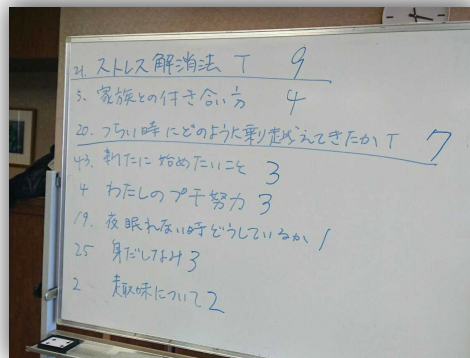 21. ストレス解消法 T 9
5. 家族との付き合い方 4
20. つらい時にどのように乗り越えてきたか T 7
43. 新たに始めたいこと 3
4 わたしのプチ努力 3
19. 夜眠れない時どうしているか 1
25 身だしなみ 3
2 趣味について 2